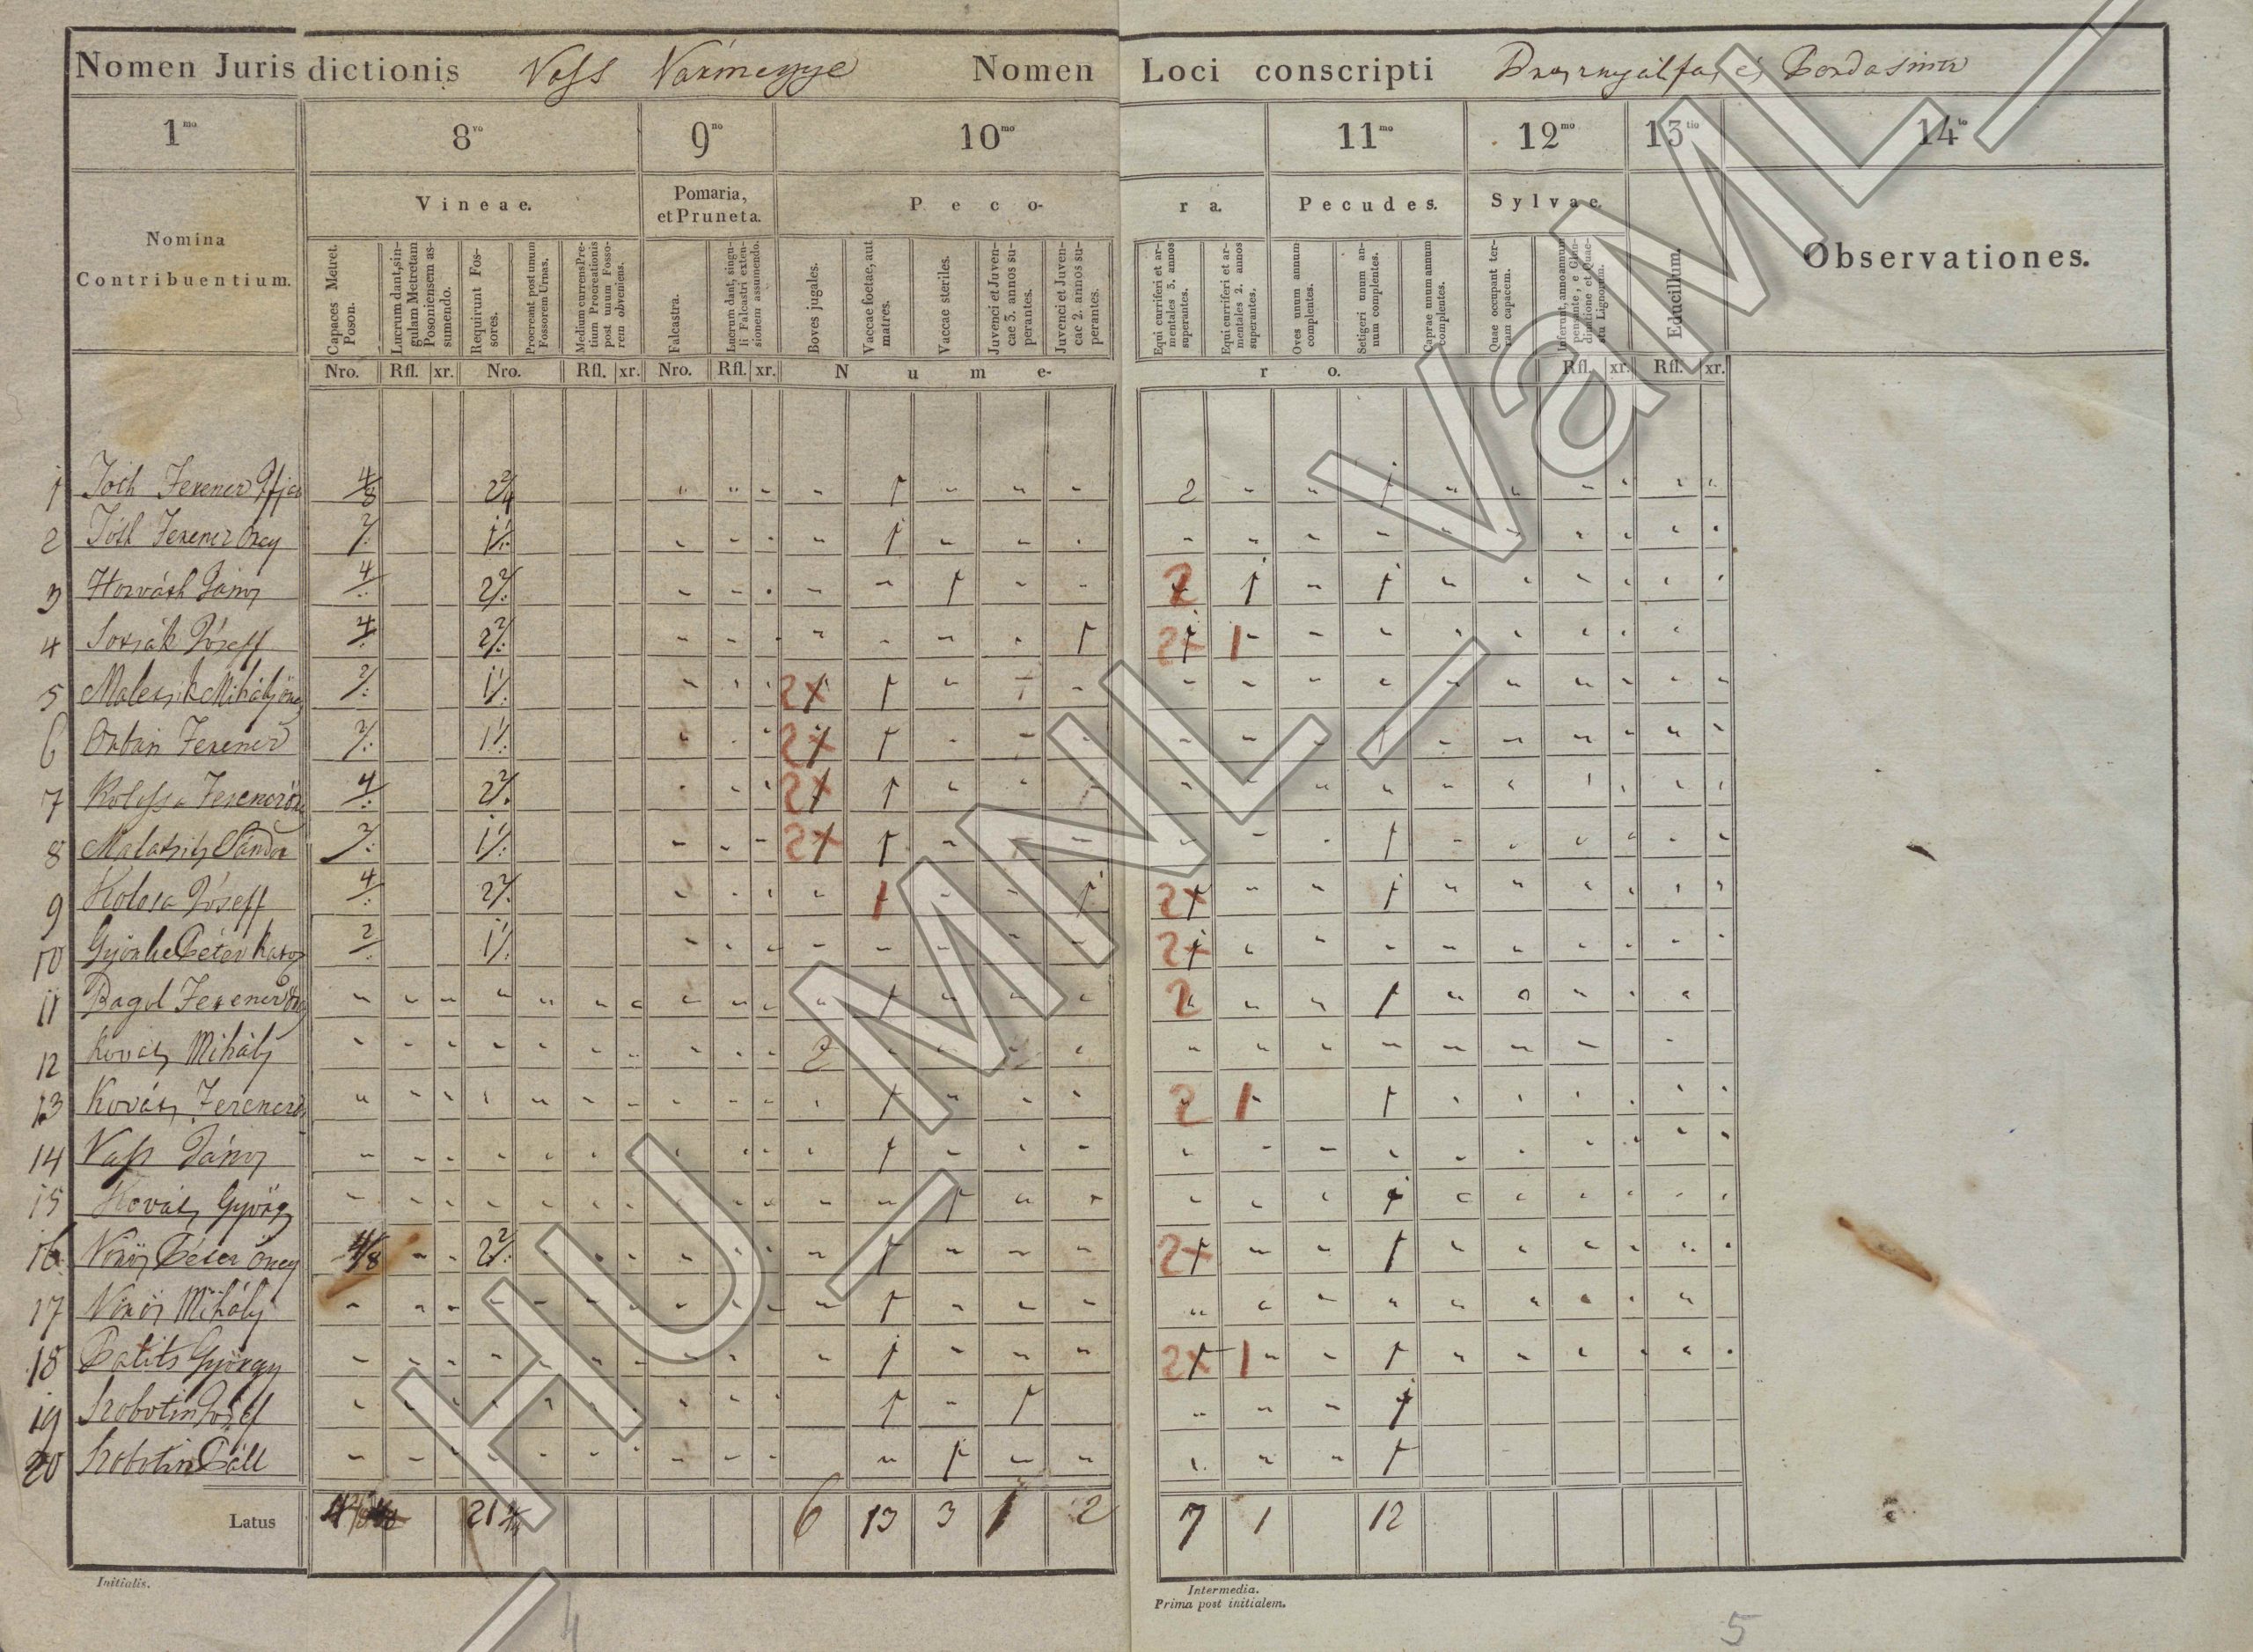 Nomen Jurisdictionis Vass Vármegye Nomen Loci conscripti
1mo 8vo 9no 10mo 11mo 12mo 13tio 14to
Vineae. Pomaria, et Pruneta. Peco- ra. Pecudes. Sylvae.
Nomina Contribuentium.
Capaces Metret. Poson.
Lucrum dant, singulam Metretam Posoniensem assumendo.
Requirunt Fossores.
Procreant post unum Fossorem Urnas.
Medium currens Pretium Procreationis post unum Fossorem obveniens.
Falcastra.
Lucrum dant, singuli Falcastri extensionem assumendo.
Boves jugales.
Vaccae foetae, aut matres.
Vaccae steriles.
Juvenci et Juvencae 3. annos superantes.
Juvenci et Juvencae 2. annos superantes.
Equi curriferi et armentales 3. annos superantes.
Equi curriferi et armentales 2. annos superantes.
Oves unum annum complentes.
Setigeri unum annum complentes.
Caprae unum annum complentes.
Quae occupant terram capacem.
Educillum.
Observationes.
Nro. Rfl. xr. Nro. Rfl. xr. Nro. Rfl. xr. N u m e- r o. Rfl. xr. Rfl. xr.
1 Tóth Ferencz 4/8 2 2/4 1 2 1
2 Tóth Ferencz öreg 1 1
3 Horváth János 4 2 2 1 2 1 1
4 József 4 2 2 1 2 1
5 Mihály öreg 2 1 1 2 1
6 Orbán Ferencz 2 1 1 2 1
7 Ferencz 4 2 2 2 1
8 Sándor 1 1 2 1 1
9 Kolosa József 4 2 2 1 1 2 1
10 Péter 2 1 1 2
11 Ferencz 1 2 1
12 Kovács Mihály 2
13 Kovács Ferencz 1 2 1 1
14 Vass János 1
15 Kovács György 1 1
16 Vörös Péter öreg 4/8 2 2 1 2 1
17 Vörös Mihály 1
18 György 1 2 1 1
19 Szobotin József 1 1 1
20 Szobotin Páll 1 1
Latus 21 6 13 3 1 2 7 1 12
Initialis.
Intermedia.
Prima post initialem.
4 5
HU_MNL_VaML_